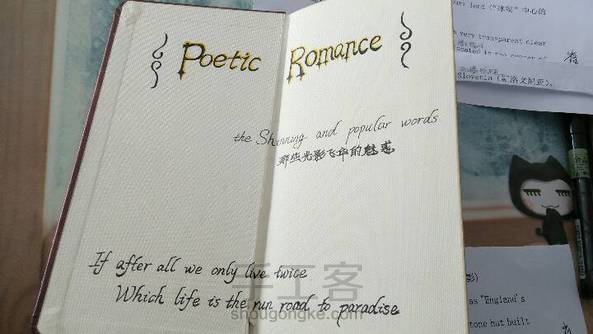 Poetic Romance
the Shinning and popular words
那些光影飞华的魅惑
If after all we only live twice
Which life is the run road to paradise
手工客
shougongke.com
中心的
very transparent clear
Slovenia
影)
as "England's
tone but built